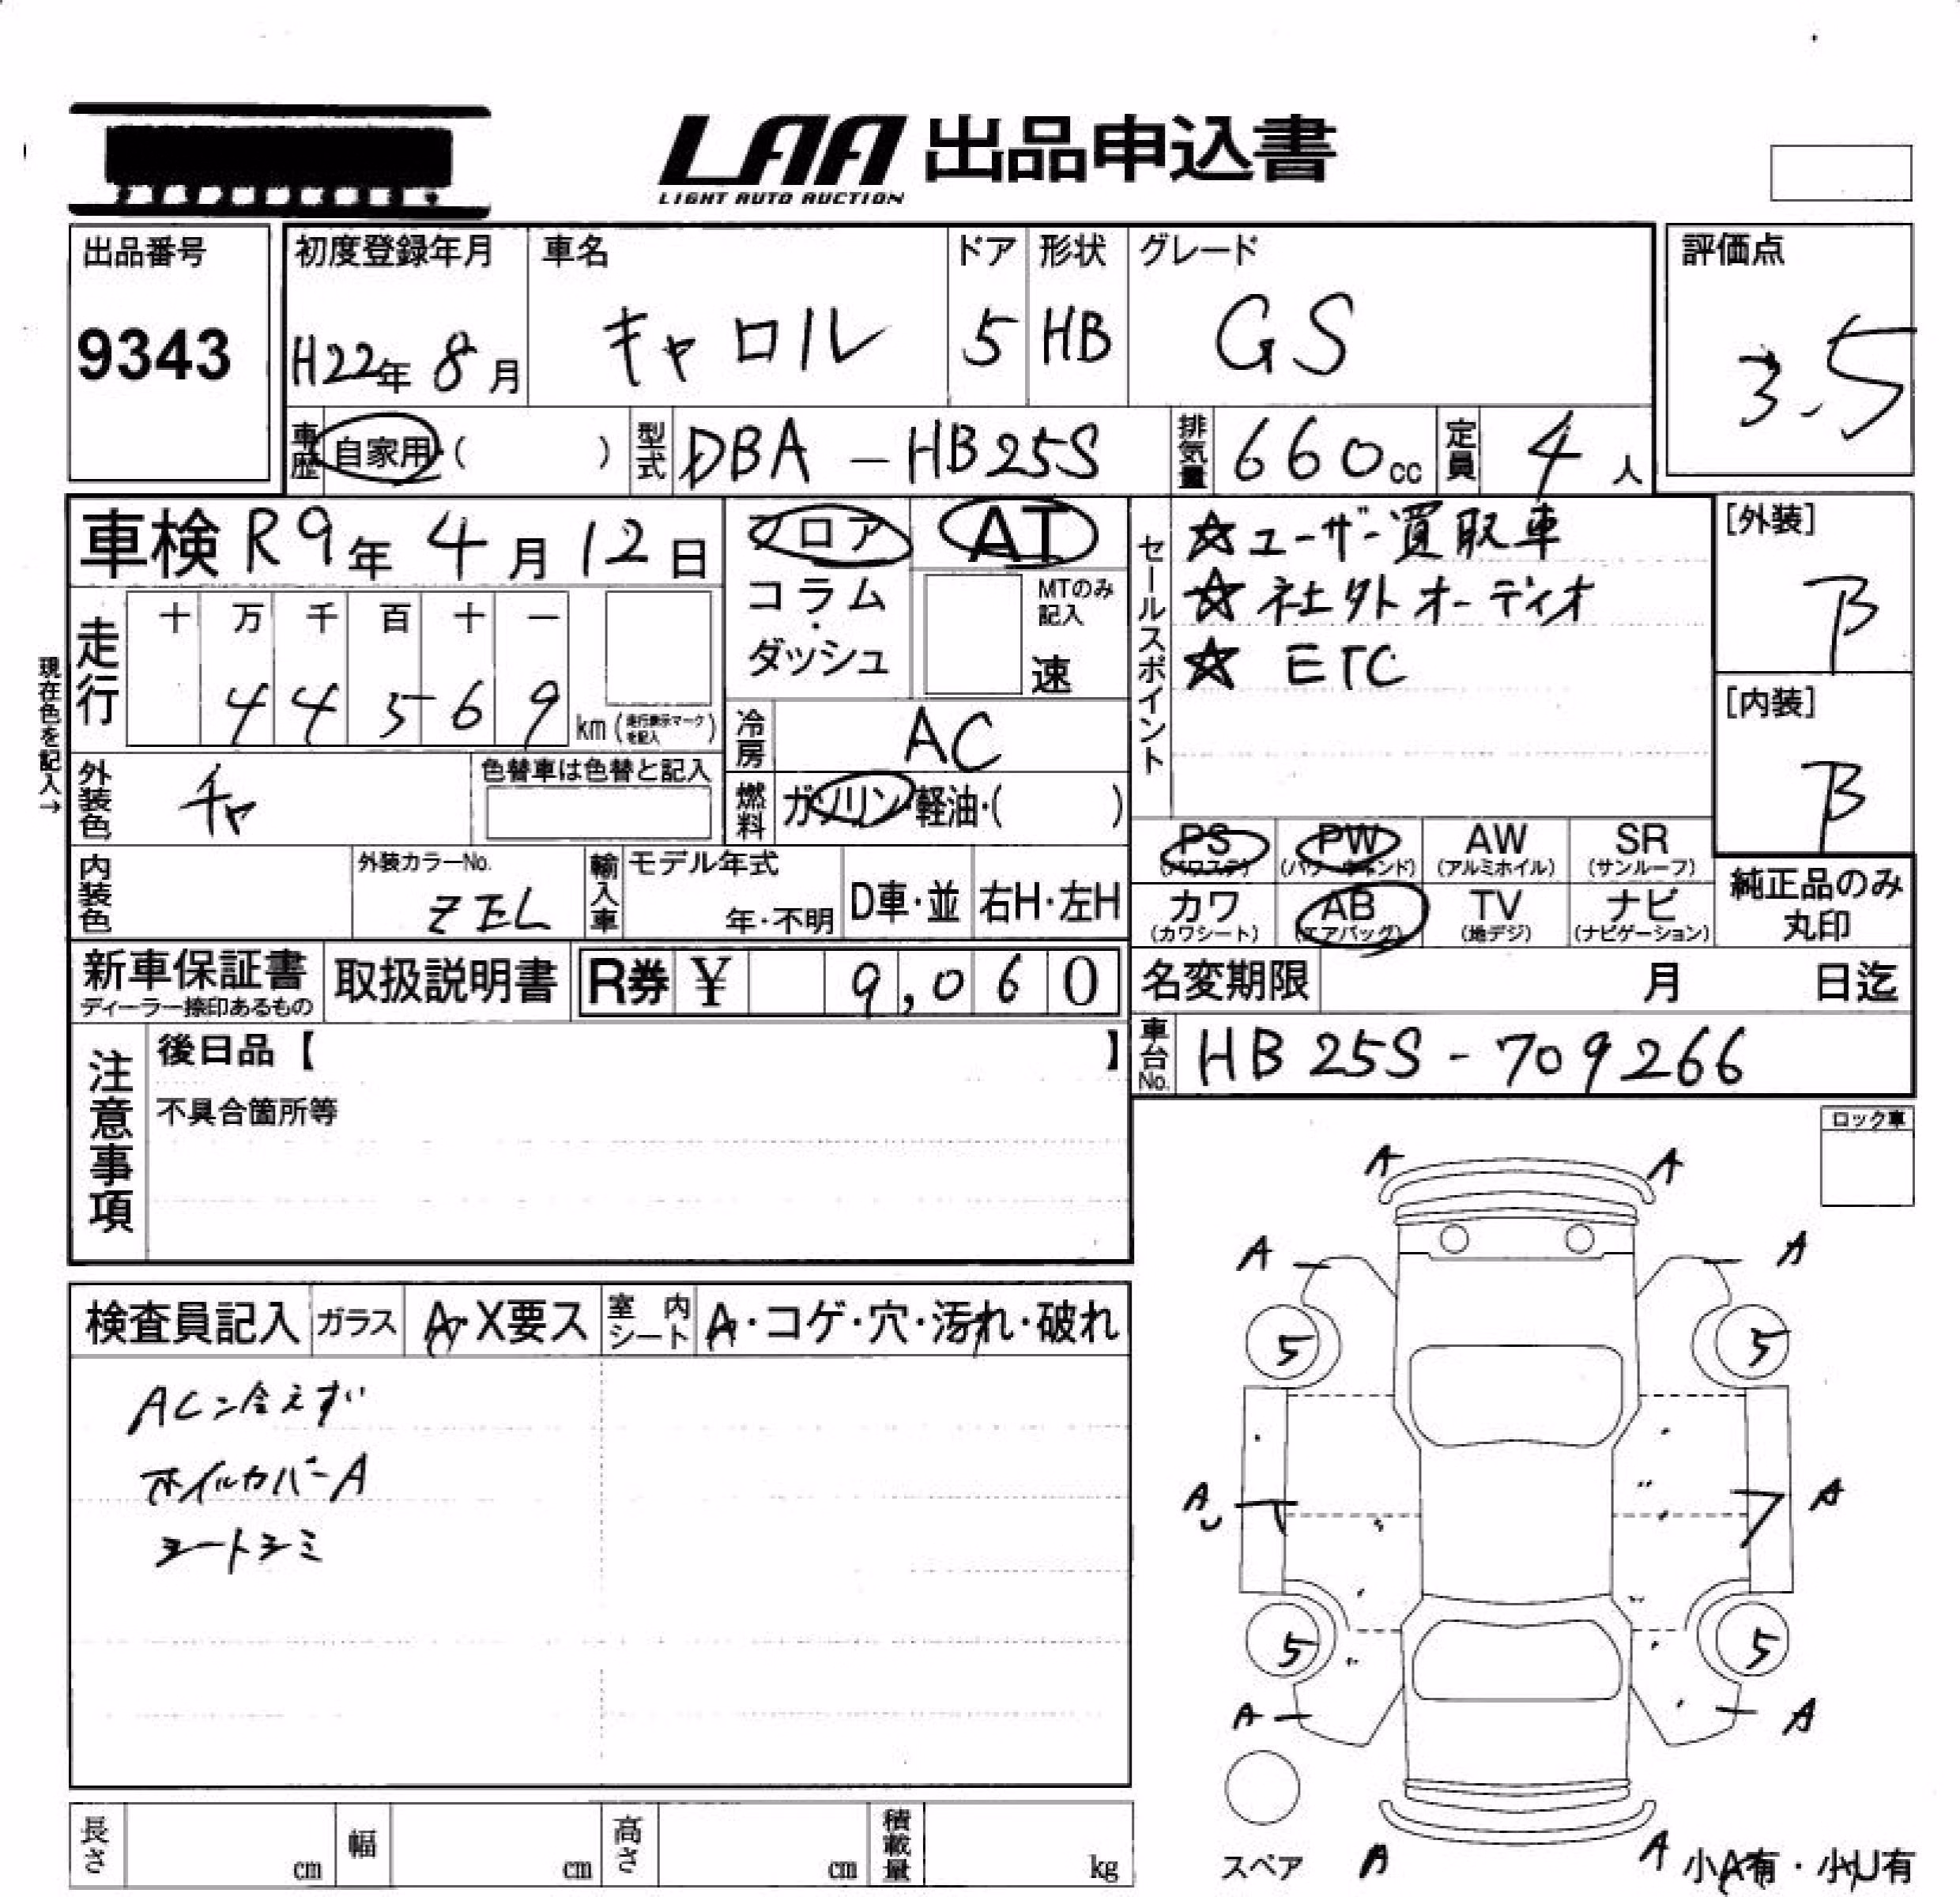 LAA 出品申込書
LIGHT AUTO AUCTION
出品番号
9343
初度登録年月
H22年 8月
車名
キャロル
ドア
5
形状
HB
グレード
GS
評価点
3.5
車歴 自家用・( )
型式 DBA-HB25S
排気量 660cc
定員 4人
車検 R9年 4月 12日
フロア
コラム・ダッシュ
AT
MTのみ記入
速
セールスポイント
☆ユーザー買取車
☆社外オーディオ
☆ ETC
[外装]
B
[内装]
B
現在色を記入→
走行
十 万 千 百 十 一
4 4 5 6 9 km (走行表示マークを記入)
冷房 AC
外装色 チャ
色替車は色替と記入
燃料 ガソリン・軽油・( )
PS (パワステ)
PW (パワーウィンド)
AW (アルミホイル)
SR (サンルーフ)
カワ (カワシート)
AB (エアバッグ)
TV (地デジ)
ナビ (ナビゲーション)
純正品のみ丸印
内装色
外装カラーNo.
ZEL
輸入車
モデル年式
年・不明
D車・並
右H・左H
新車保証書
ディーラー捺印あるもの
取扱説明書
R券 ¥ 9,060
名変期限 月 日迄
車台No. HB25S-709266
注意事項
後日品【 】
不具合箇所等
ロック車
検査員記入
ガラス A・X要ス
室内シート A・コゲ・穴・汚れ・破れ
AC冷えず
ホイルカバーA
シートシミ
A A
A A
5 5
A A
U
5 5
A A
スペア
A A
小A有・小U有
長さ cm
幅 cm
高さ cm
積載量 kg